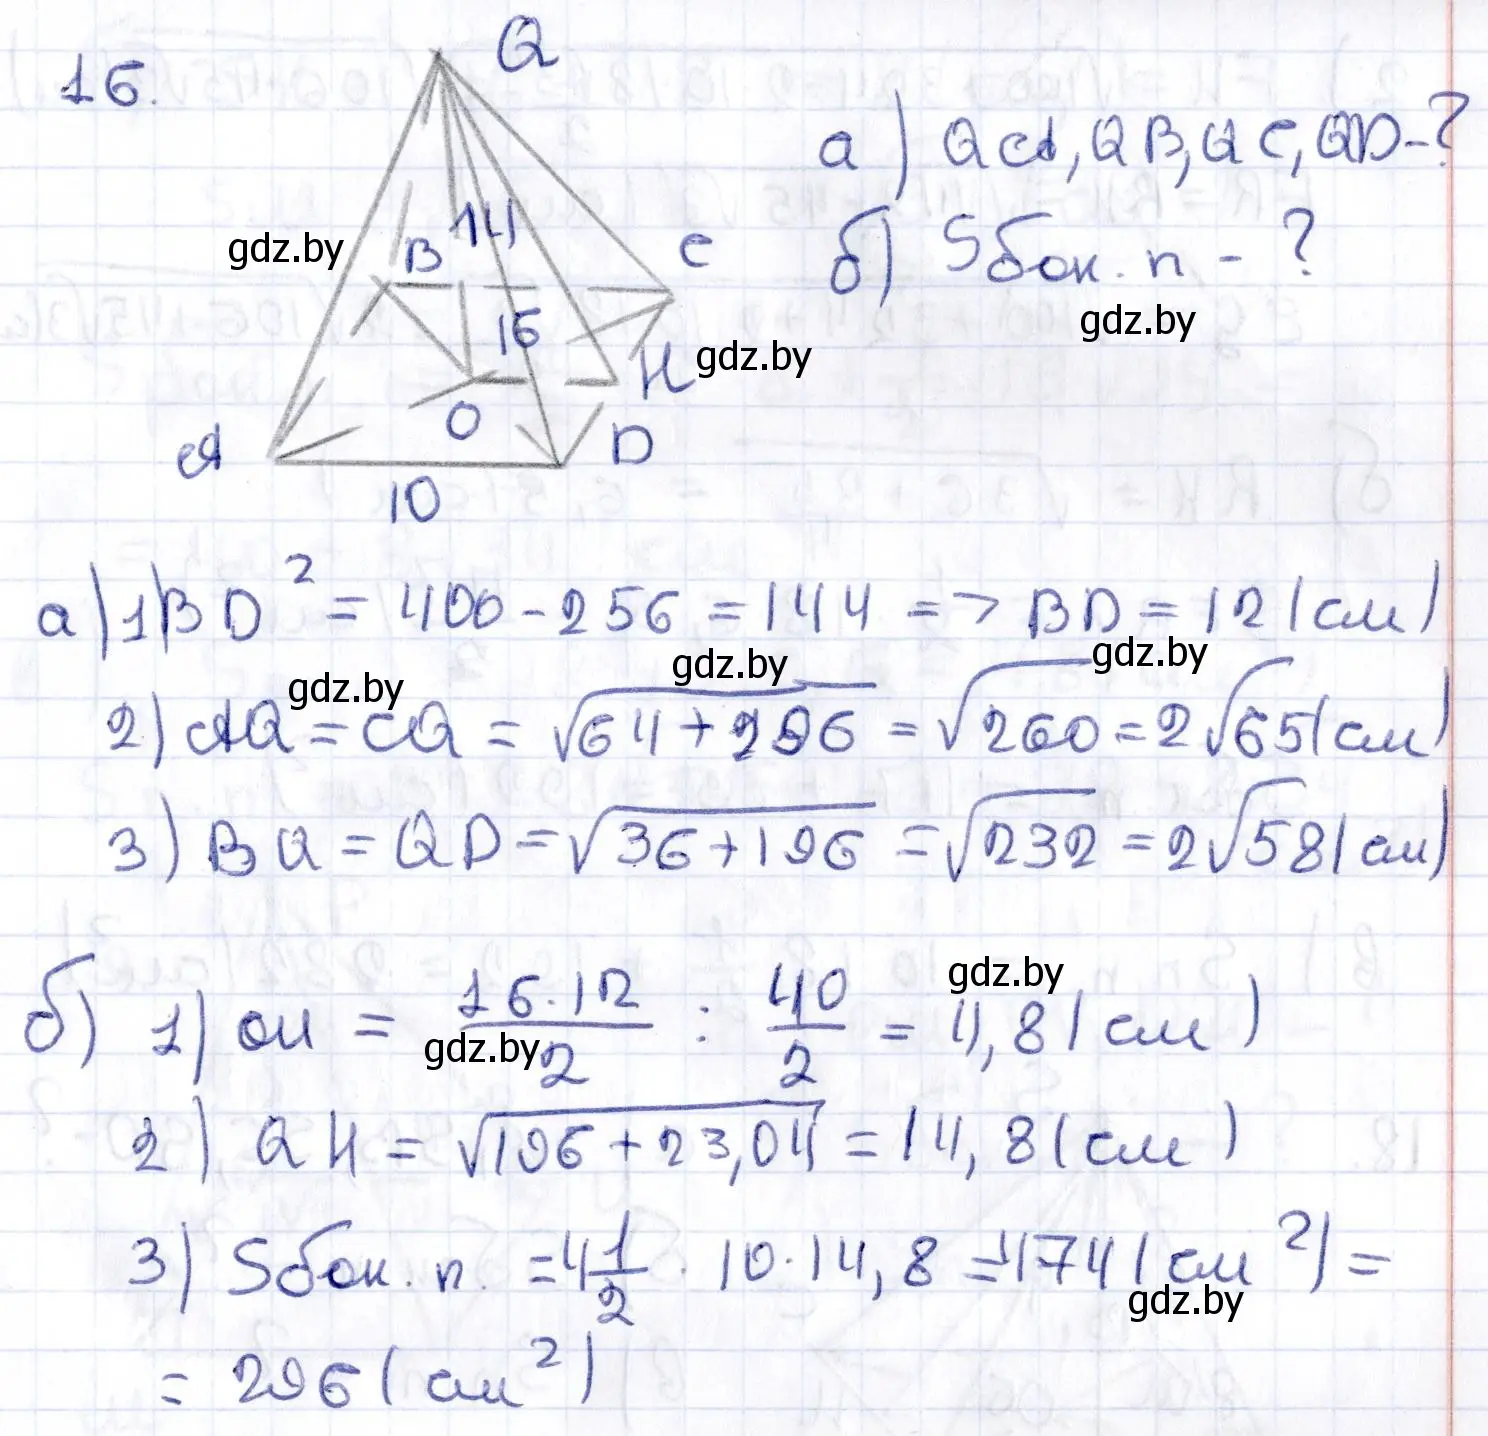 16.
Q
а) QA, QB, QC, QD - ?
14
gdz.by
B
C
б) Sбок. п - ?
16
gdz.by
H
gdz.by
O
A
D
10
а) 1) BD² = 400 - 256 = 144 => BD = 12 (см)
gdz.by
gdz.by
gdz.by
2) AQ = CQ = √64 + 296 = √260 = 2√65 (см)
3) BQ = QD = √36 + 196 = √232 = 2√58 (см)
gdz.by
б) 1) OH = 16 · 12 / 2 : 40 / 2 = 4,8 (см)
gdz.by
2) QH = √196 + 23,04 = 14,8 (см)
3) Sбок. п. = 4 1/2 · 10 · 14,8 = 174 (см²) =
gdz.by
= 296 (см²)